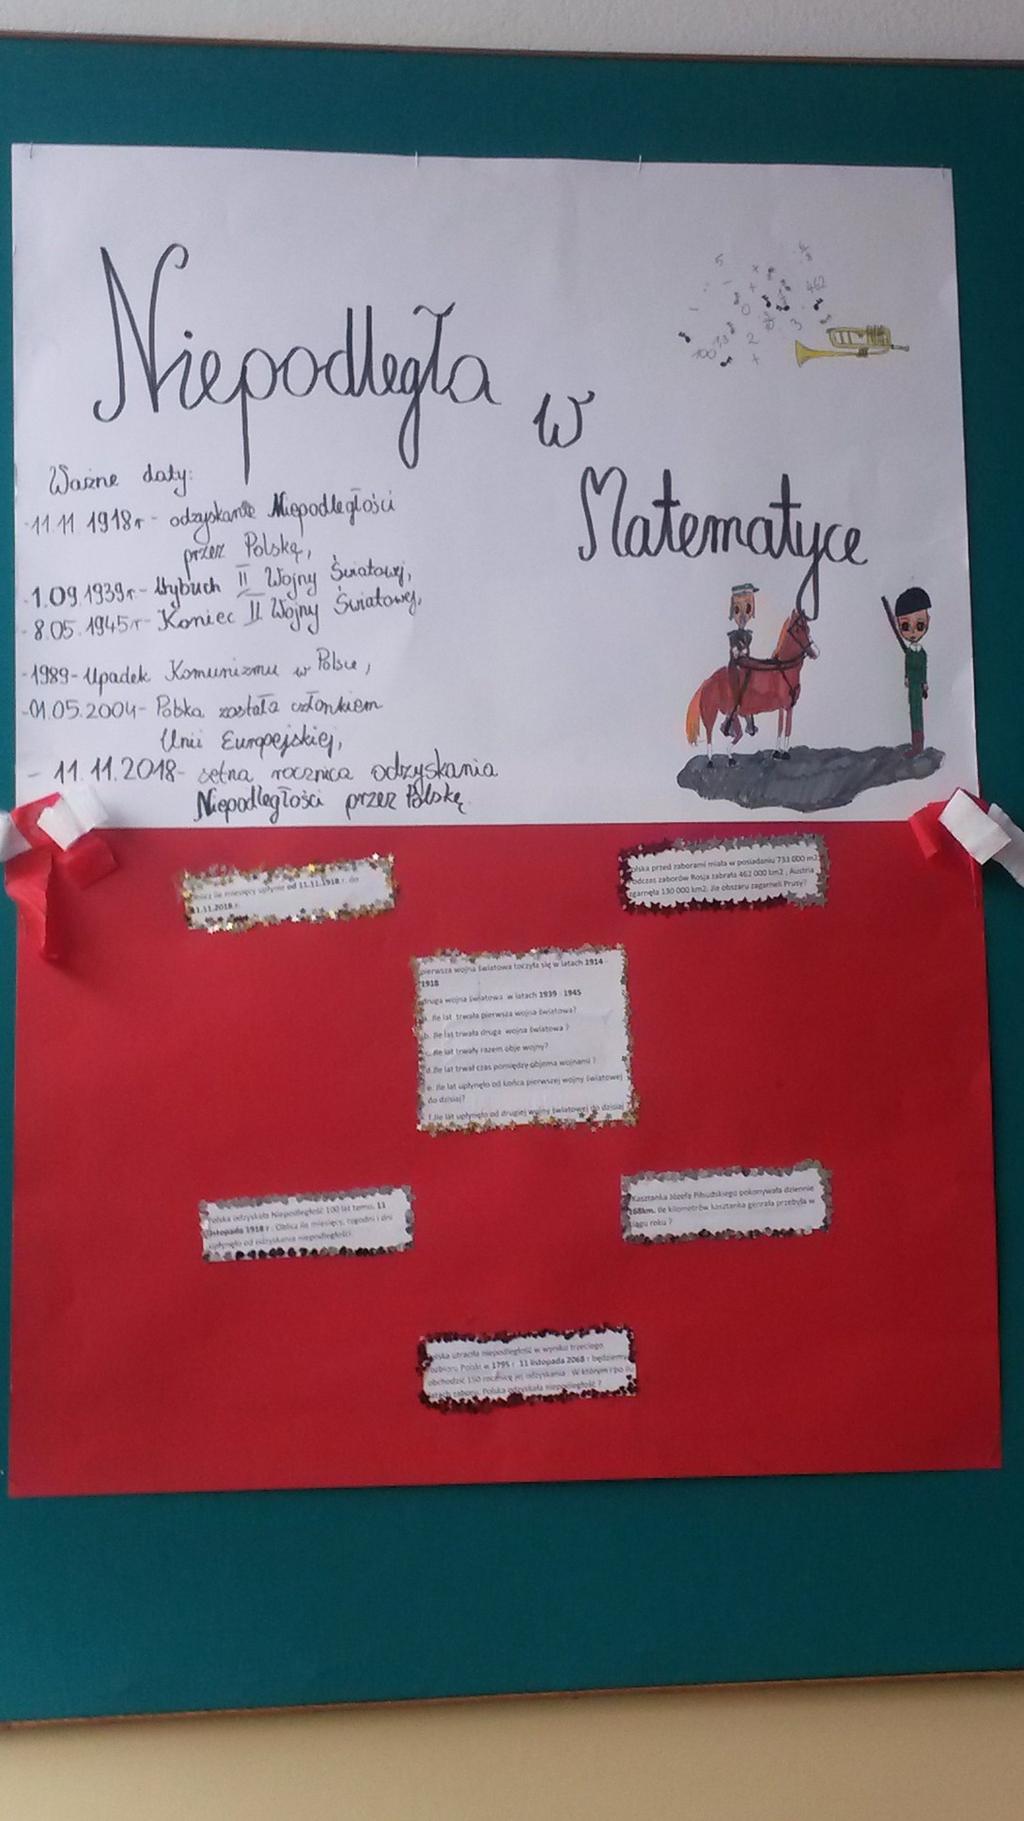 Niepodległa
w
Matematyce
Ważne daty:
-11.11 1918r - odzyskanie Niepodległości
przez Polskę,
-1.09.1939r - Wybuch II Wojny Światowej,
- 8.05.1945r - Koniec II Wojny Światowej,
-1989 - Upadek Komunizmu w Polsce,
-01.05.2004 - Polska została członkiem
Unii Europejskiej,
- 11.11.2018 - setna rocznica odzyskania
Niepodległości przez Polskę.
5
462
0
3
2
100
ile miesięcy upłynie od 11.11.1918 r. do
11.11.2018 r.
przed zaborami miała w posiadaniu 733 000 m2
odczas zaborów Rosja zabrała 462 000 km2 , Austria
zgarnęła 130 000 km2. Ile obszaru zagarneli Prusy?
pierwsza wojna światowa toczyła się w latach 1914 -
1918
druga wojna światowa w latach 1939 - 1945
a. Ile lat trwała pierwsza wojna światowa?
b. Ile lat trwała druga wojna światowa ?
c. Ile lat trwały razem obie wojny?
d. Ile lat trwał czas pomiędzy objema wojnami ?
e. Ile lat upłynęło od końca pierwszej wojny światowej
do dzisiaj?
f. Ile lat upłynęło od drugiej wojny światowej do dzisiaj
Polska odzyskała Niepodległość 100 lat temu, 11
listopada 1918 r . Oblicz ile miesięcy, tygodni i dni
upłynęło od odzyskania niepodległości.
Kasztanka Józefa Piłsudskiego pokonywała dziennie
168km. Ile kilometrów kasztanka genrała przebyła w
ciągu roku ?
utraciła niepodległość w wyniku trzeciego
rozbioru Polski w 1795 r 11 listopada 2068 r będziemy
obchodzić 150 rocznicę jej odzyskania . W którym i po ilu
latach zaboru, Polska odzyskała niepodległość ?